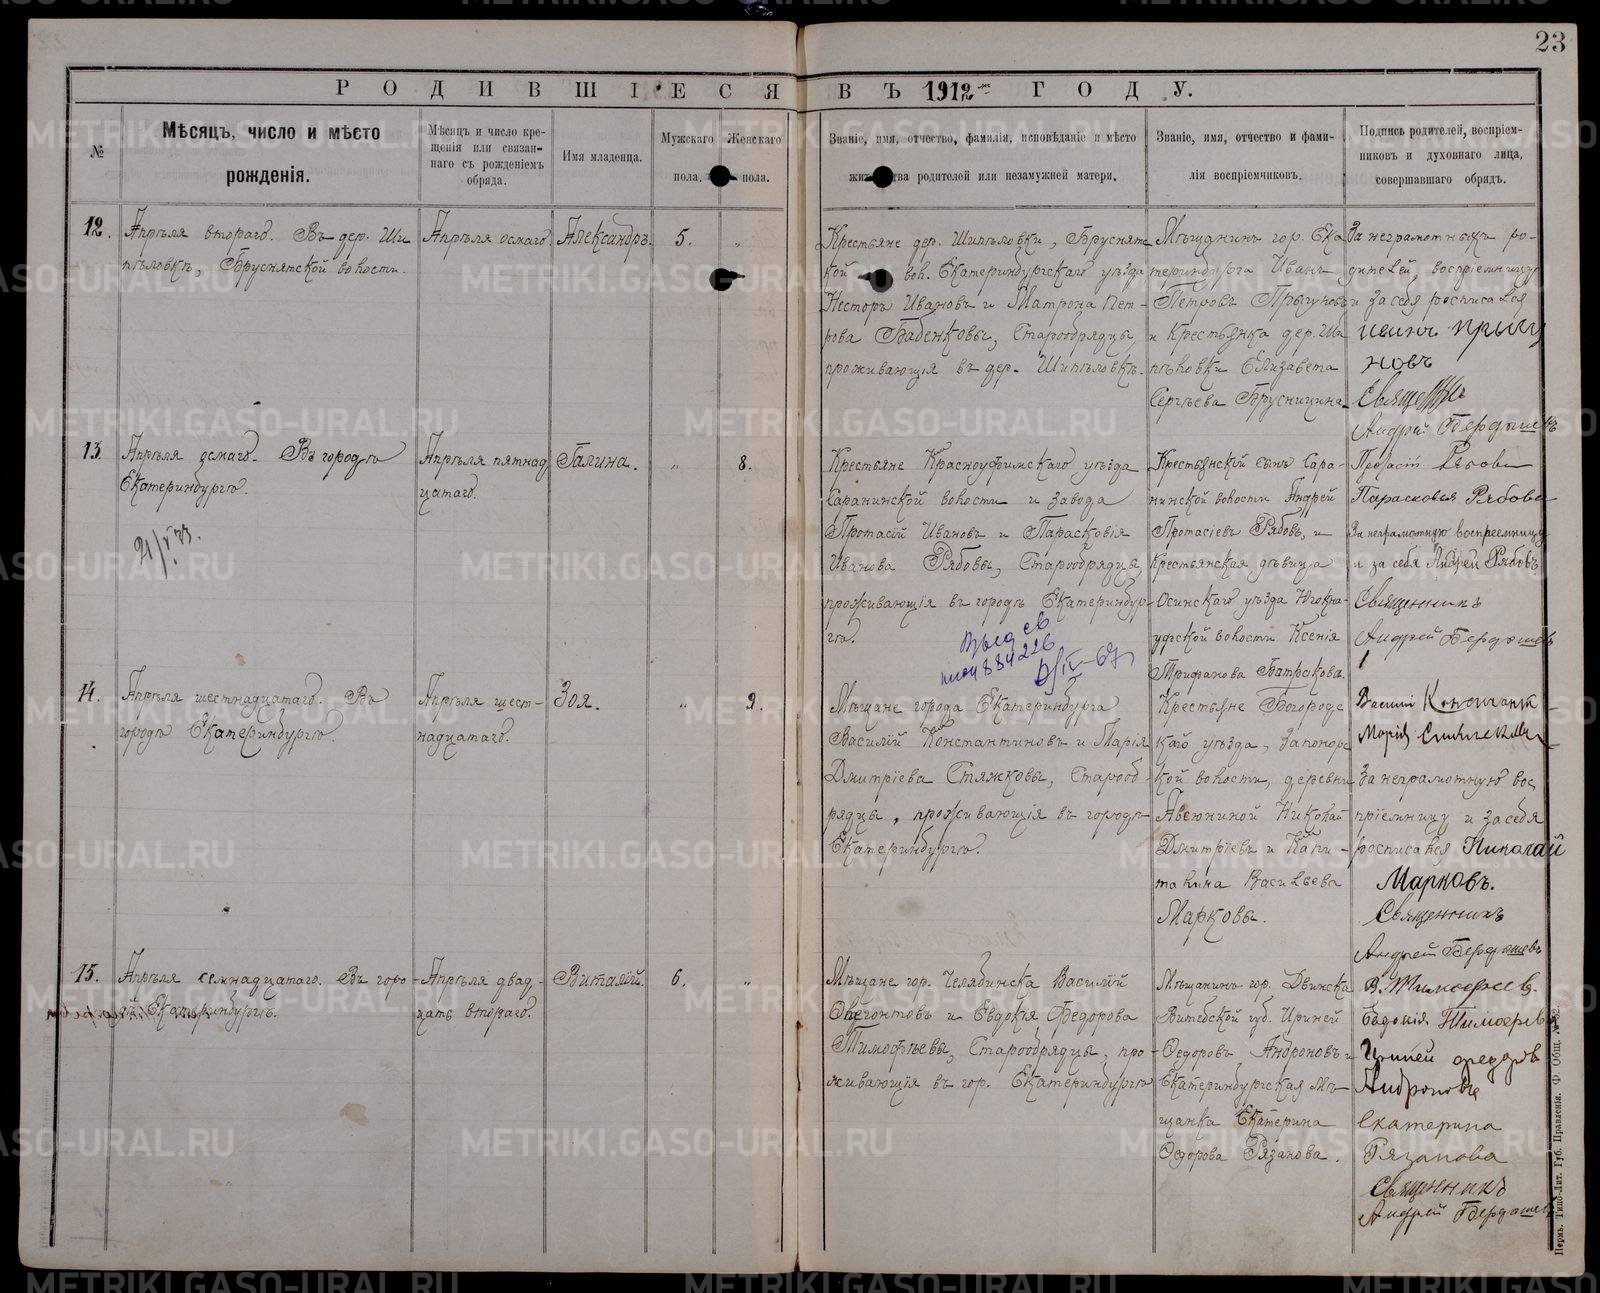 23
РОДИВШІЕСЯ ВЪ 1912 ГОДУ.
№
Мѣсяцъ, число и мѣсто
рожденія.
Мѣсяцъ и число кре-
щенія или связан-
наго съ рожденіемъ
обряда.
Имя младенца.
Мужскаго
пола.
Женскаго
пола.
Званіе, имя, отчество, фамилія, исповѣданіе и мѣсто
жительства родителей или незамужней матери.
Званіе, имя, отчество и фами-
лія воспріемчиковъ.
Подпись родителей, воспріем-
никовъ и духовнаго лица,
совершавшаго обрядъ.
12.
Апрѣля втораго. Въ дер. Ши
пѣловкѣ, Бруснятской волости.
Апрѣля осмаго
Александръ.
5.
"
Крестьяне дер. Шипѣловки, Бруснятс
кой вол. Екатеринбургскаго уѣзда
Несторъ Ивановъ и Матрона Пет-
рова Бабенковы, Старообрядцы,
проживающія въ дер. Шипѣловкѣ.
Мѣщанинъ гор. Ека
теринбурга Иванъ
Петровъ Прыгуновъ
и Крестьянка дер. Ши
пѣловки Елизавета
Сергѣева Брусницина
За неграмотныхъ ро-
дителей, воспріемницу
и за себя росписался
иванъ прыгу
новъ
Священникъ
Андрей Бердышевъ
13.
Апрѣля осмаго. Въ городѣ
Екатеринбургѣ.
21/V 33.
Апрѣля пятнад
цатаго.
Галина.
"
8.
Крестьяне Красноуфимскаго уѣзда
Саранинской волости и завода
Протасій Ивановъ и Парасковія
Иванова Рябовы, Старообрядцы,
проживающія въ городѣ Екатеринбур-
гѣ.
Выд св
884226
Крестьянскій сынъ Сара-
нинской волости Андрей
Протасіевъ Рябовъ, и
Крестьянская дѣвица
Осинскаго уѣзда Югокна-
уфской волости Ксенія
Трифанова Батракова.
Протасій Рябовъ
Парасковья Рябова
За неграмотную воспреемницу
и за себя Андрей Рябовъ
Священникъ
Андрей Бердышевъ
14.
Апрѣля шестнадцатаго. Въ
городѣ Екатеринбургѣ.
Апрѣля шест-
надцатаго.
Зоя.
"
9.
Мѣщане города Екатеринбурга
Василій Константиновъ и Марія
Дмитріева Стяжковы, Старооб-
рядцы, проживающія въ городѣ
Екатеринбургѣ.
Крестьяне Богородс
каго уѣзда, Запонорс
кой волости, деревни
Авсюниной Николай
Дмитріевъ и Капи-
толина Васильева
Марковы.
Василій
Марія
За неграмотную вос
пріемницу и за себя
росписался Николай
Марковъ.
Священникъ
Андрей Бердышевъ
15.
Апрѣля семнадцатаго. Въ горо-
дѣ Екатеринбургѣ.
Апрѣля двад-
цать втораго.
Виталій.
6.
"
Мѣщане гор. Челябинска Василій
Ферапонтовъ и Евдокія Федорова
Тимофѣевы, Старообрядцы, про-
живающія въ гор. Екатеринбургѣ
Мѣщанинъ гор. Двинска
Витебской губ. Ириней
Федоровъ Андроновъ и
Екатеринбургская Мѣ-
щанка Екатерина
Федорова Рязанова.
В. Тимофеев.
Евдокія Тимофеева
Ириней федоров
Андроновъ
екатерина
Рязанова
Священникъ
Андрей Бердышевъ
Пермь. Типо-Лит. Губ. Правленія. Ф. Общ. №
METRIKI.GASO-URAL.RU